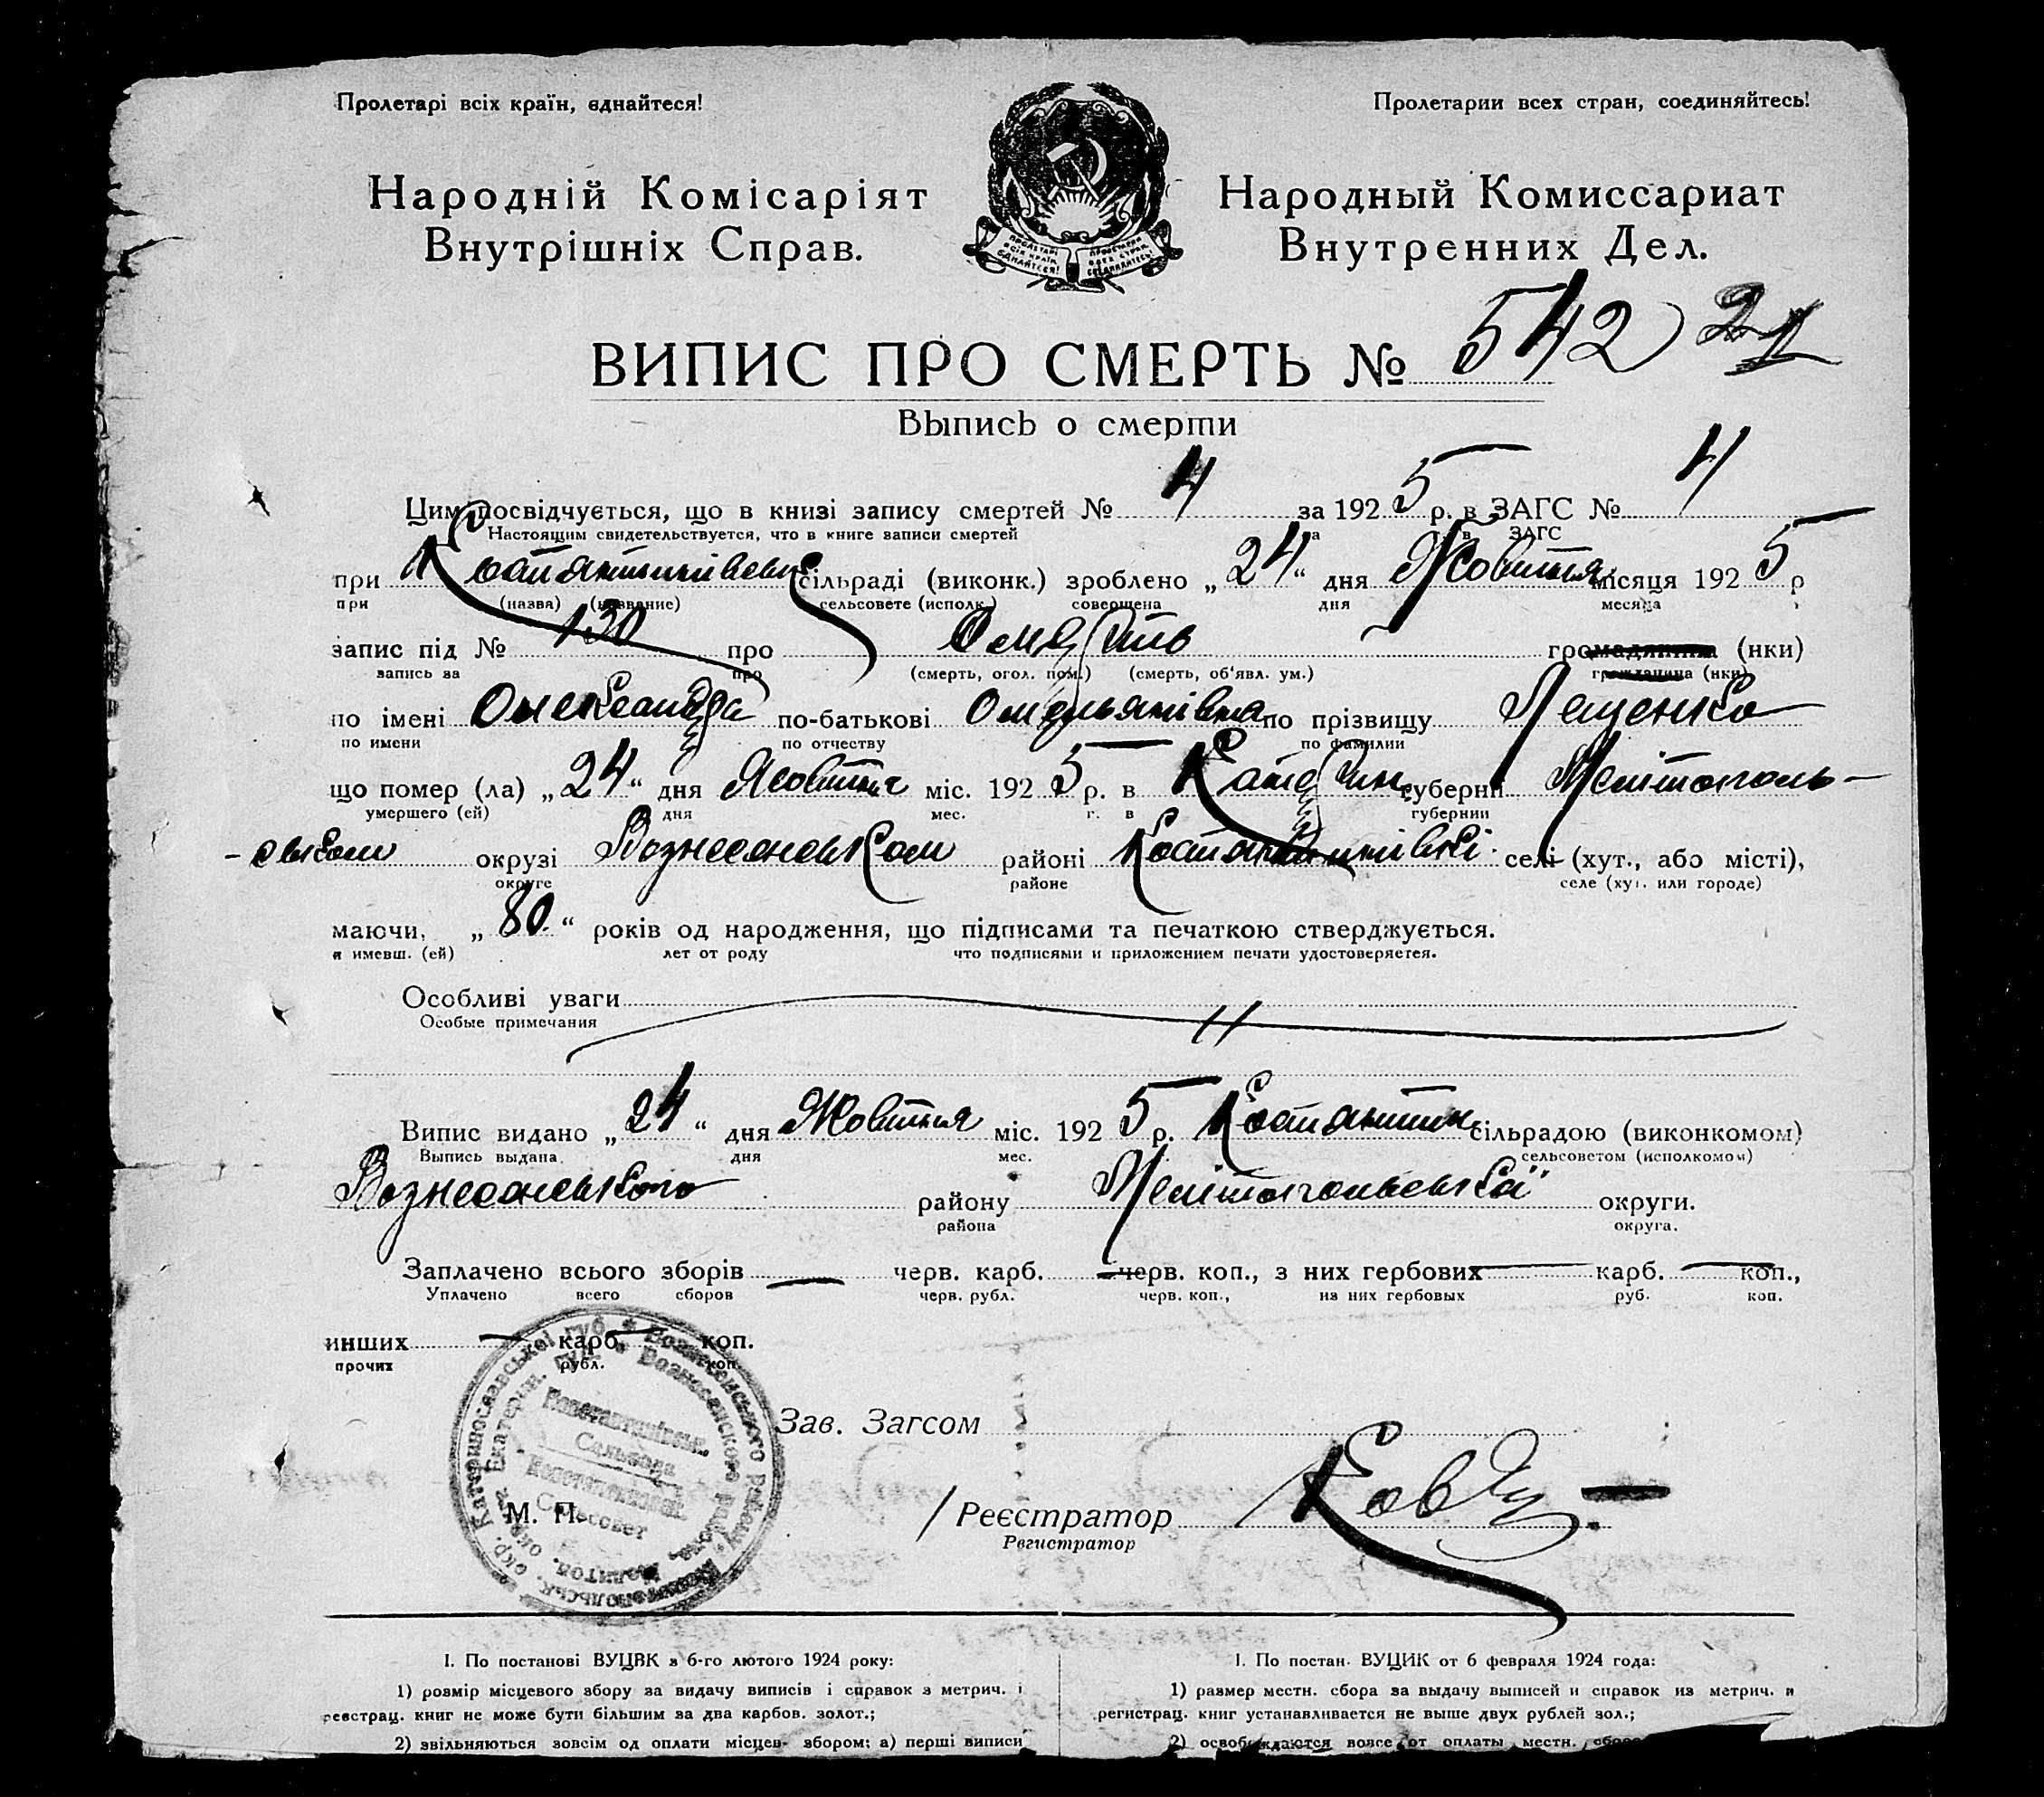 Пролетарі всіх країн, єднайтеся! Пролетарии всех стран, соединяйтесь!
Народній Комісаріят Народный Комиссариат
Внутрішніх Справ. Внутренних Дел.
ПРОЛЕТАРІ ВСІХ КРАЇН ЄДНАЙТЕСЯ! ПРОЛЕТАРИИ ВСЕХ СТРАН, СОЕДИНЯЙТЕСЬ!
ВИПИС ПРО СМЕРТЬ № 542
Выпись о смерти
Цим посвідчується, що в книзі запису смертей № 4 за 1925 р. в ЗАГС № 4
Настоящим свидетельствуется, что в книге записи смертей за г. в ЗАГС
при сільраді (виконк.) зроблено „24“ дня Жовтня місяця 1925 р
при (назва) (название) сельсовете (исполк.) совершена дня месяца
запис під № 130 про Смерть громадянина (нки)
запись за про (смерть, огол. пом.) (смерть, об'явл. ум.) гражданина (нки)
по імені Олександра по-батькові Омельянівна по прізвищу Лещенко
по имени по отчеству по фамилии
що помер (ла) „24“ дня Жовтня міс. 1925 р. в Катерин. губерні Мелітополь-
умершего (ей) дня мес. г. в губернии
-ськом окрузі Вознесенськом районі Костянтинівкі селі (хут., або місті),
округе районе селе (хут. или городе)
маючи, „80.“ років од народження, що підписами та печаткою стверджується.
и имевш. (ей) лет от роду что подписями и приложением печати удостоверяется.
Особливі уваги
Особые примечания
Випис видано „24“ дня Жовтня міс. 1925 р. Костянтин. сільрадою (виконкомом)
Выпись выдана дня мес. сельсоветом (исполкомом)
Вознесенського району Мелітопольської округи.
района округа.
Заплачено всього зборів — черв. карб. — черв. коп., з них гербових — карб. — коп.,
Уплачено всего сборов черв. рубл. черв. коп., из них гербовых руб. коп.
инших — карб. — коп.
прочих рубл. коп.
Катеринославської губ. Вознесенського району, Мелітопольськ. окр.
Екатерин. губ. Вознесенского района, Мелитоп. окр.
Зав. Загсом
М. П.
Реєстратор
Регистратор
I. По постанові ВУЦВК з 6-го лютого 1924 року:
1) розмір місцевого збору за видачу виписів і справок з метрич. і
реєстрац. книг не може бути більшим за два карбов. золот.;
2) звільняються зовсім од оплати місцев. збором: а) перші виписи
I. По постан. ВУЦИК от 6 февраля 1924 года:
1) размер местн. сбора за выдачу выписей и справок из метрич. и
регистрац. книг устанавливается не выше двух рублей зол.;
2) освобождаются вовсе от оплаты местн.